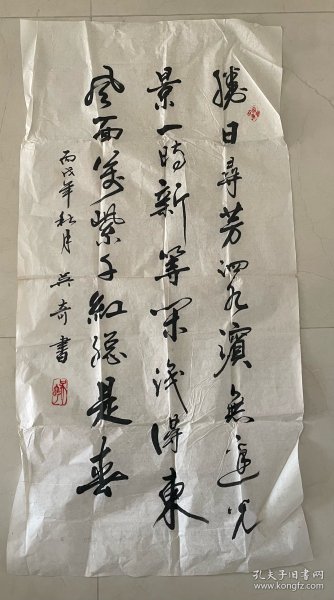 勝日尋芳泗水濱無邊光
景一時新等閒識得東
風面萬紫千紅總是春
丙戌年秋月吴奇書
孔夫子旧书网
www.kongfz.com